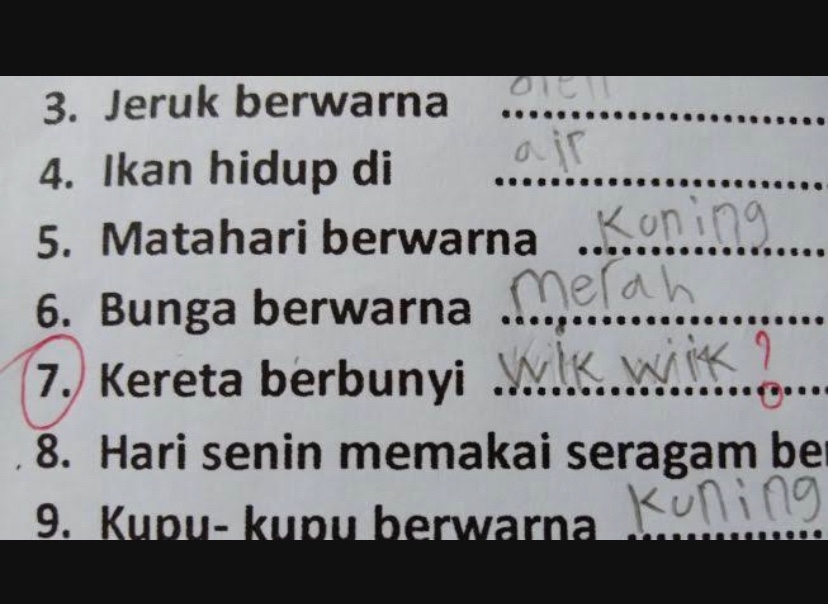 3. Jeruk berwarna ..............................
4. Ikan hidup di air ..............................
5. Matahari berwarna Koning ......................
6. Bunga berwarna merah ..........................
7. Kereta berbunyi wik wiik ? .....................
8. Hari senin memakai seragam be
9. Kupu- kupu berwarna Kuning ....................